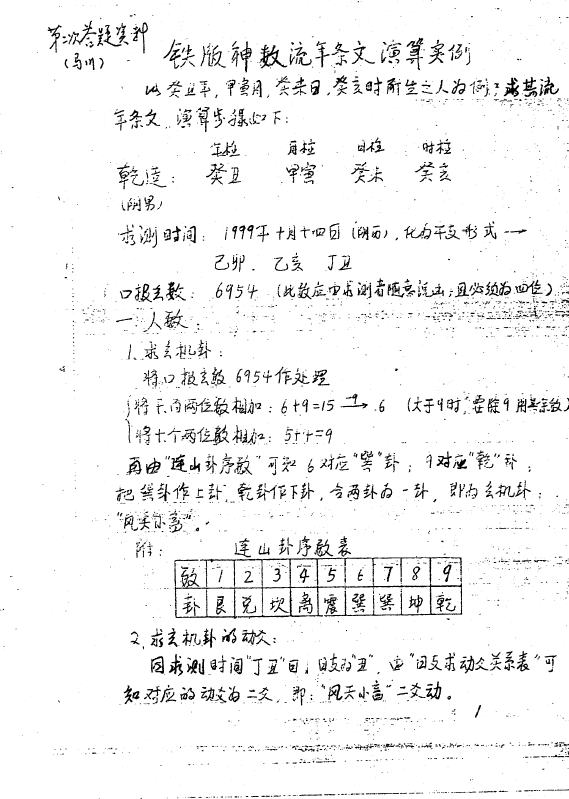 第二次答题资料
(马川)
铁版神数流年条文演算实例
以癸丑年,甲寅月,癸未日,癸亥时所生之人为例,求其流
年条文,演算步骤如下:
年柱 月柱 日柱 时柱
乾造: 癸丑 甲寅 癸未 癸亥
(阴男)
求测时间: 1999年十月十四日(阴历),化为干支形式→
己卯、乙亥 丁丑
口报玄数: 6954 (此数应由求测者随意说出,且必须为四位)
一、人数:
1、求玄机卦:
将口报玄数6954作处理
将千百两位数相加: 6+9=15 →9 6 (大于9时,要除9用其余数)
将十个两位数相加: 5+4=9
再由"连山卦序数"可知6对应"巽"卦;9对应"乾"卦;
把巽卦作上卦,乾卦作下卦,合两卦为一卦,即为玄机卦:
"风天小畜"。
附: 连山卦序数表
数 1 2 3 4 5 6 7 8 9
卦 艮 兑 坎 离 震 巽 巽 坤 乾
2、求玄机卦的动爻:
因求测时间"丁丑"日,日支为"丑",由"日支求动爻关系表"可
知对应的动爻为二爻,即:"风天小畜"二爻动。
1